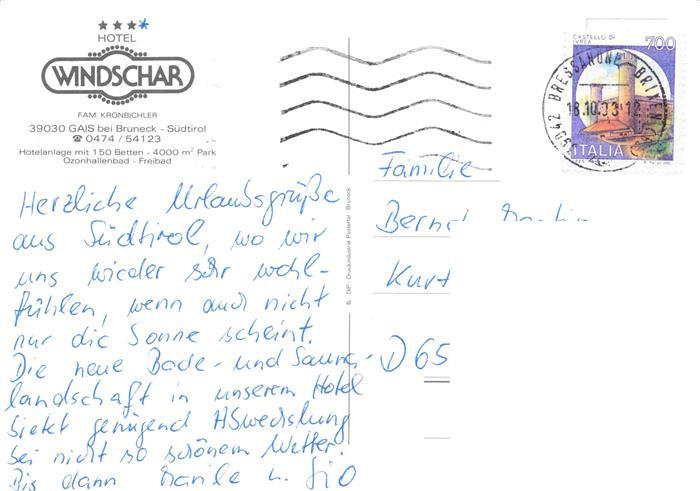 HOTEL
WINDSCHAR
FAM. KRONBICHLER
39030 GAIS bei Bruneck - Südtirol
☎ 0474 / 54123
Hotelanlage mit 150 Betten - 4000 m² Park
Ozonhallenbad - Freibad
Herzliche Urlaubsgrüße
aus Südtirol, wo wir
uns wieder sehr wohl-
fühlen, wenn auch nicht
nur die Sonne scheint.
Die neue Bade- und Sauna-
landschaft in unserem Hotel
bietet genügend Abwechslung
bei nicht so schönem Wetter.
Bis dann u.
6 DIP: Druckindustrie Pustertal Bruneck
CASTELLO DI
IVREA
700
ITALIA
39042 BRESSANONE - BRIXEN
18.10.93
Familie
Bernd
Kurt
D 65